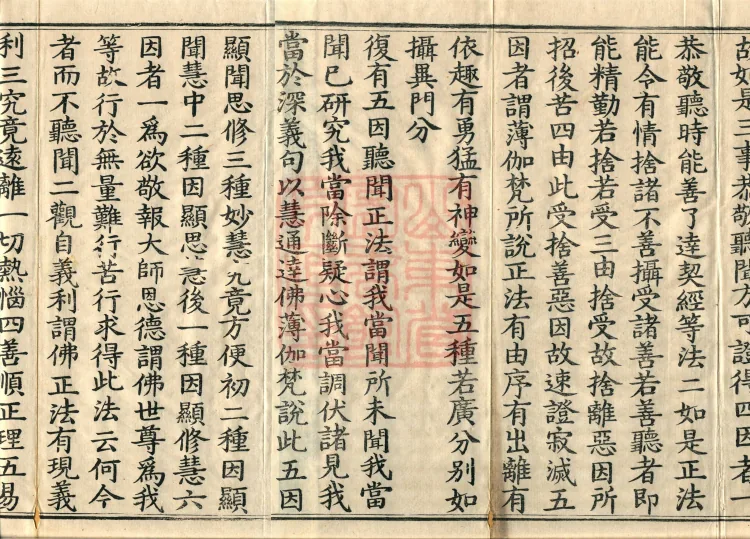 故如是三事恭敬聽聞方可證得四因者一
恭敬聽時能善了達契經等法二如是正法
能令有情捨諸不善攝受諸善若善聽者即
能精勤若捨若受三由捨受故捨離惡因所
招後苦四由此受捨善惡因故速證寂滅五
因者謂薄伽梵所說正法有由序有出離有
依趣有勇猛有神變如是五種若廣分別如
攝異門分
復有五因聽聞正法謂我當聞所未聞我當
聞已研究我當除斷疑心我當調伏諸見我
當於深義句以慧通達佛薄伽梵說此五因
顯聞思修三種妙慧究竟方便初二種因顯
聞慧中二種因顯思慧後一種因顯修慧六
因者一爲欲敬報大師恩德謂佛世尊爲我
等故行於無量難行苦行求得此法云何今
者而不聽聞二觀自義利謂佛正法有現義
利三究竟遠離一切熱惱四善順正理五易